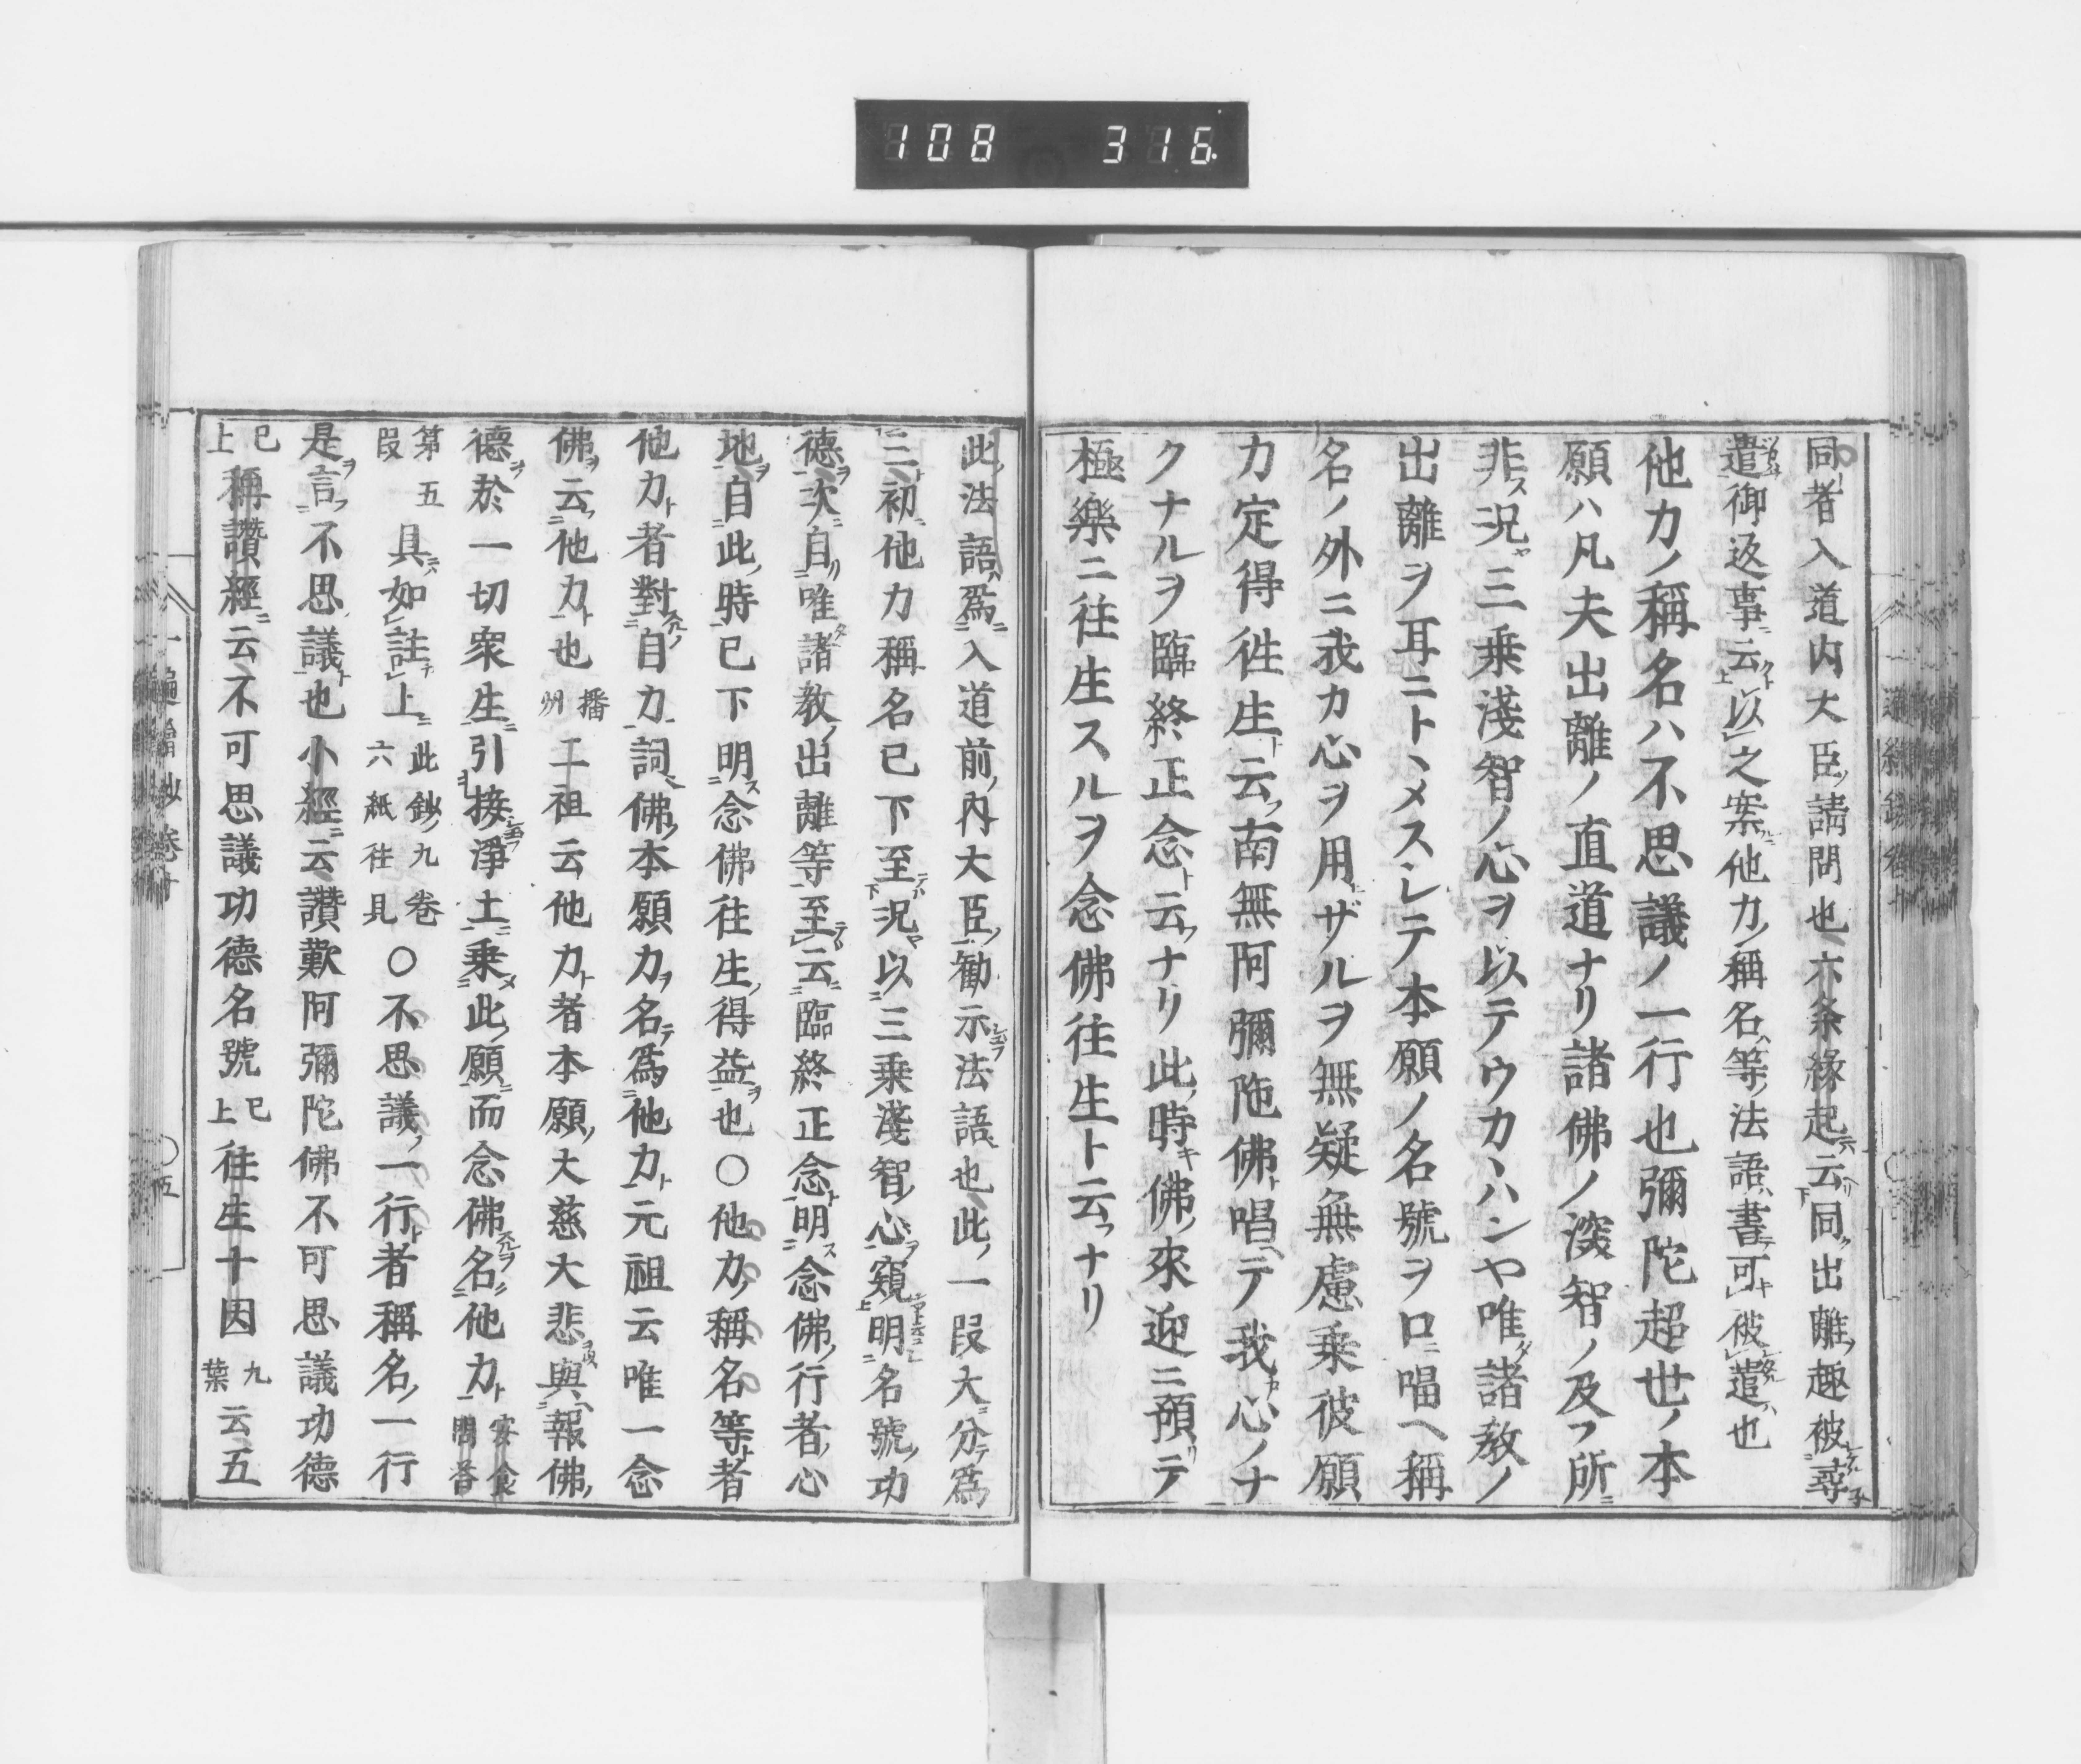 108 316
同者入道内大臣ノ請問也亦条縁起ニ云同ノ出離ノ趣被尋
遣御返事ニ云以之案他力ノ稱名ハ等ノ法語ハ書テ可キ被遣也
他力ノ稱名ハ不思議ノ一行也彌陀超世ノ本
願ハ凡夫出離ノ直道ナリ諸佛ノ深智ノ及フ所ニ
非ス況ヤ三乗淺智ノ心ヲ以テウカヽハンヤ唯タ諸教ノ
出離ヲ耳ニトヽメスシテ本願ノ名號ヲ口ニ唱ヘ稱
名ノ外ニ我カ心ヲ用ザルヲ無疑無慮乗彼願
力定得徃生ト云フ南無阿彌陁佛ト唱ヘテ我カ心ノナ
クナルヲ臨終正念ト云フナリ此ノ時キ佛ノ來迎ニ預リテ
極樂ニ往生スルヲ念佛往生ト云フナリ
此ノ法語ハ爲ニ入道前ノ内大臣ノ勧示法語也此ノ一段大ニ分テ爲
三ト初ニ他力稱名已下至況ヤ以三乗淺智ノ心ヲ窺明名號ノ功
德ヲ次ニ自リ唯タ諸教ノ出離等至云ニ臨終正念ト明ス念佛ノ行者ノ心
地ヲ自此ノ時已下明ス念佛往生ノ得益ヲ也○他力ノ稱名等ト者
他力ト者對自力ニ詞佛ノ本願力ヲ名テ爲他力ト元祖云唯一念
佛ヲ云フ他力ト也播州二祖云他力ト者本願ノ大慈大悲與報佛ノ
德ヲ於一切衆生ニ引接淨土ニ乗メ此ノ願ニ而念佛名ヲ他力ト
第五段具ニ如註上ニ此鈔九卷六紙徃見○不思議ノ一行ト者稱名ノ一行
是ヲ言フ不思議ト也小經ニ云讚歎阿彌陀佛不可思議功德
已上稱讚經ニ云不可思議功德名號已上往生十因九葉云五
一遍語鈔卷十
五